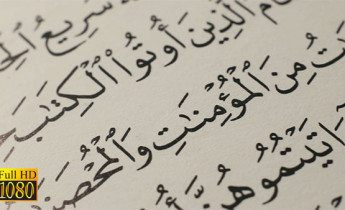 سَرِيعُ ٱلْحِ
ٱلَّذِينَ أُوتُوا۟ ٱلْكِتَٰبَ
مِنَ ٱلْمُؤْمِنَٰتِ وَٱلْمُحْصَنَ
ءَاتَيْتُمُوهُنَّ
Full HD
1080